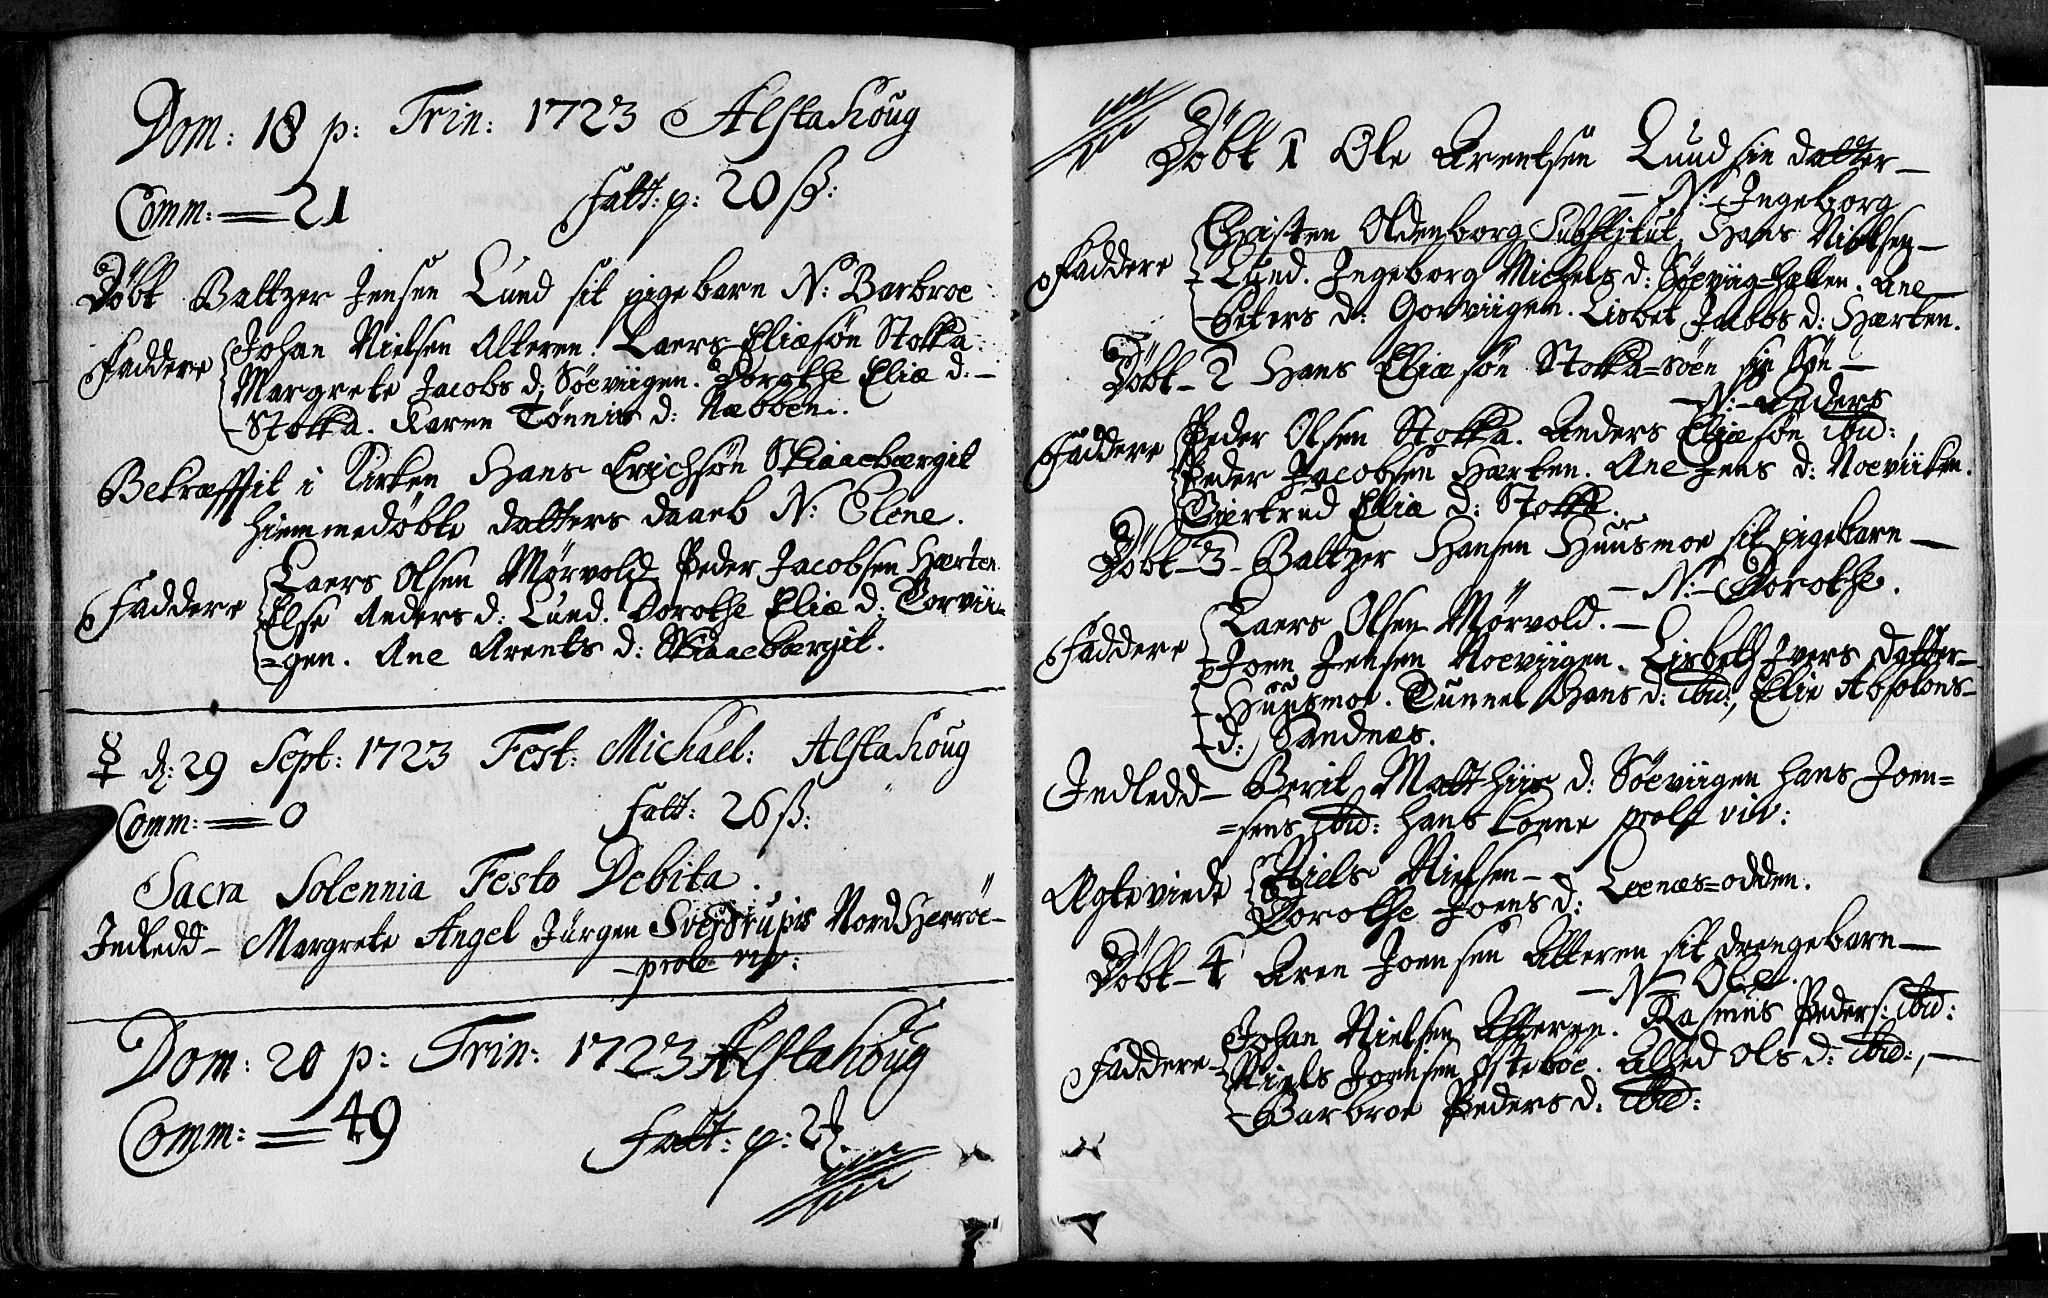 Dom: 18 p: Trin: 1723 Alstahoug
Comm: = 21 Fatt: p: 20 ß:
Döbt Baltzer Jensen Lund sit pigebarn N: Barbroe
Faddere Johan Nielsen Alteren. Laers Eliæsøn Stokka.
Margrete Jacobs d: Søeviigen. Dorothe Eliæ d: –
– Stokka. Karen Tønnis d: Næbben.
Bekræfftit i Kirken Hans Erichsøn Skiaabærgit
hiemmedøbte datters daab N: Elene.
Faddere Laers Olsen Mørvold Peder Jacobsen Hærten.
Else Anders d: Lund. Dorothe Eliæ d: Torvii=
=gen. Ane Arents d: Skiaabærgit.
☿ d: 29 Sept: 1723 Fest: Michael: Alstahoug
Comm: = 0 Fatt: 26 ß:
Sacra Solennia Festo Debita.
Indledd – Margrete Angel Jürgen Svejstrups Nord Herrøe –
– prole viv:
Dom: 20 p: Trin: 1723 Alstahoug
Comm: = 49 Fatt: p: 2
Döbt 1 Ole Arentsen Lund sin datter –
– N: Ingeborg
Faddere Christen Oldenborg Substitut, Hans Nielsen –
– Lund. Ingeborg Michels d: Søeviig=hallen. Ane
– Peters d: Gorviigen. Lisbet Jacobs d: Hærten.
Döbt – 2 Hans Eliæsøn Stokka=søen sin Søn –
– N: – Anders
Faddere Peder Olsen Stokka. Anders Eliæsøn ibid:
Peder Jacobsen Hærten. Ane Jens d: Noeviiken.
Giertrud Eliæ d: Stokka.
Döbt – 3 – Baltzer Hansen Huusmoe sit pigebarn –
– N: – Dorothe.
Faddere Laers Olsen Mørvold. –
– Joen Jensen Noeviigen. Lisbeth Ivers datter –
– Huusmoe. Tunnel Hans d: ibid:, Elie Absolons –
– d: Sandnæs.
Indledd – Berit Matthiis d: Søeviigen Hans Joen=
=sens ibid: hans Kone prole viv:
Ægteviede Niels Nielsen –
Dorothe Joens d: Leenæs=odden.
Döbt – 4 Aren Joensen Alteren sit drengebarn –
– N – Ole.
Faddere – Johan Nielsen Alteren. Rasmus Peders: ibid:
Niels Joensen Østebøe. Alhed Ols d: ibid:, –
– Barbroe Peders d: ibid: